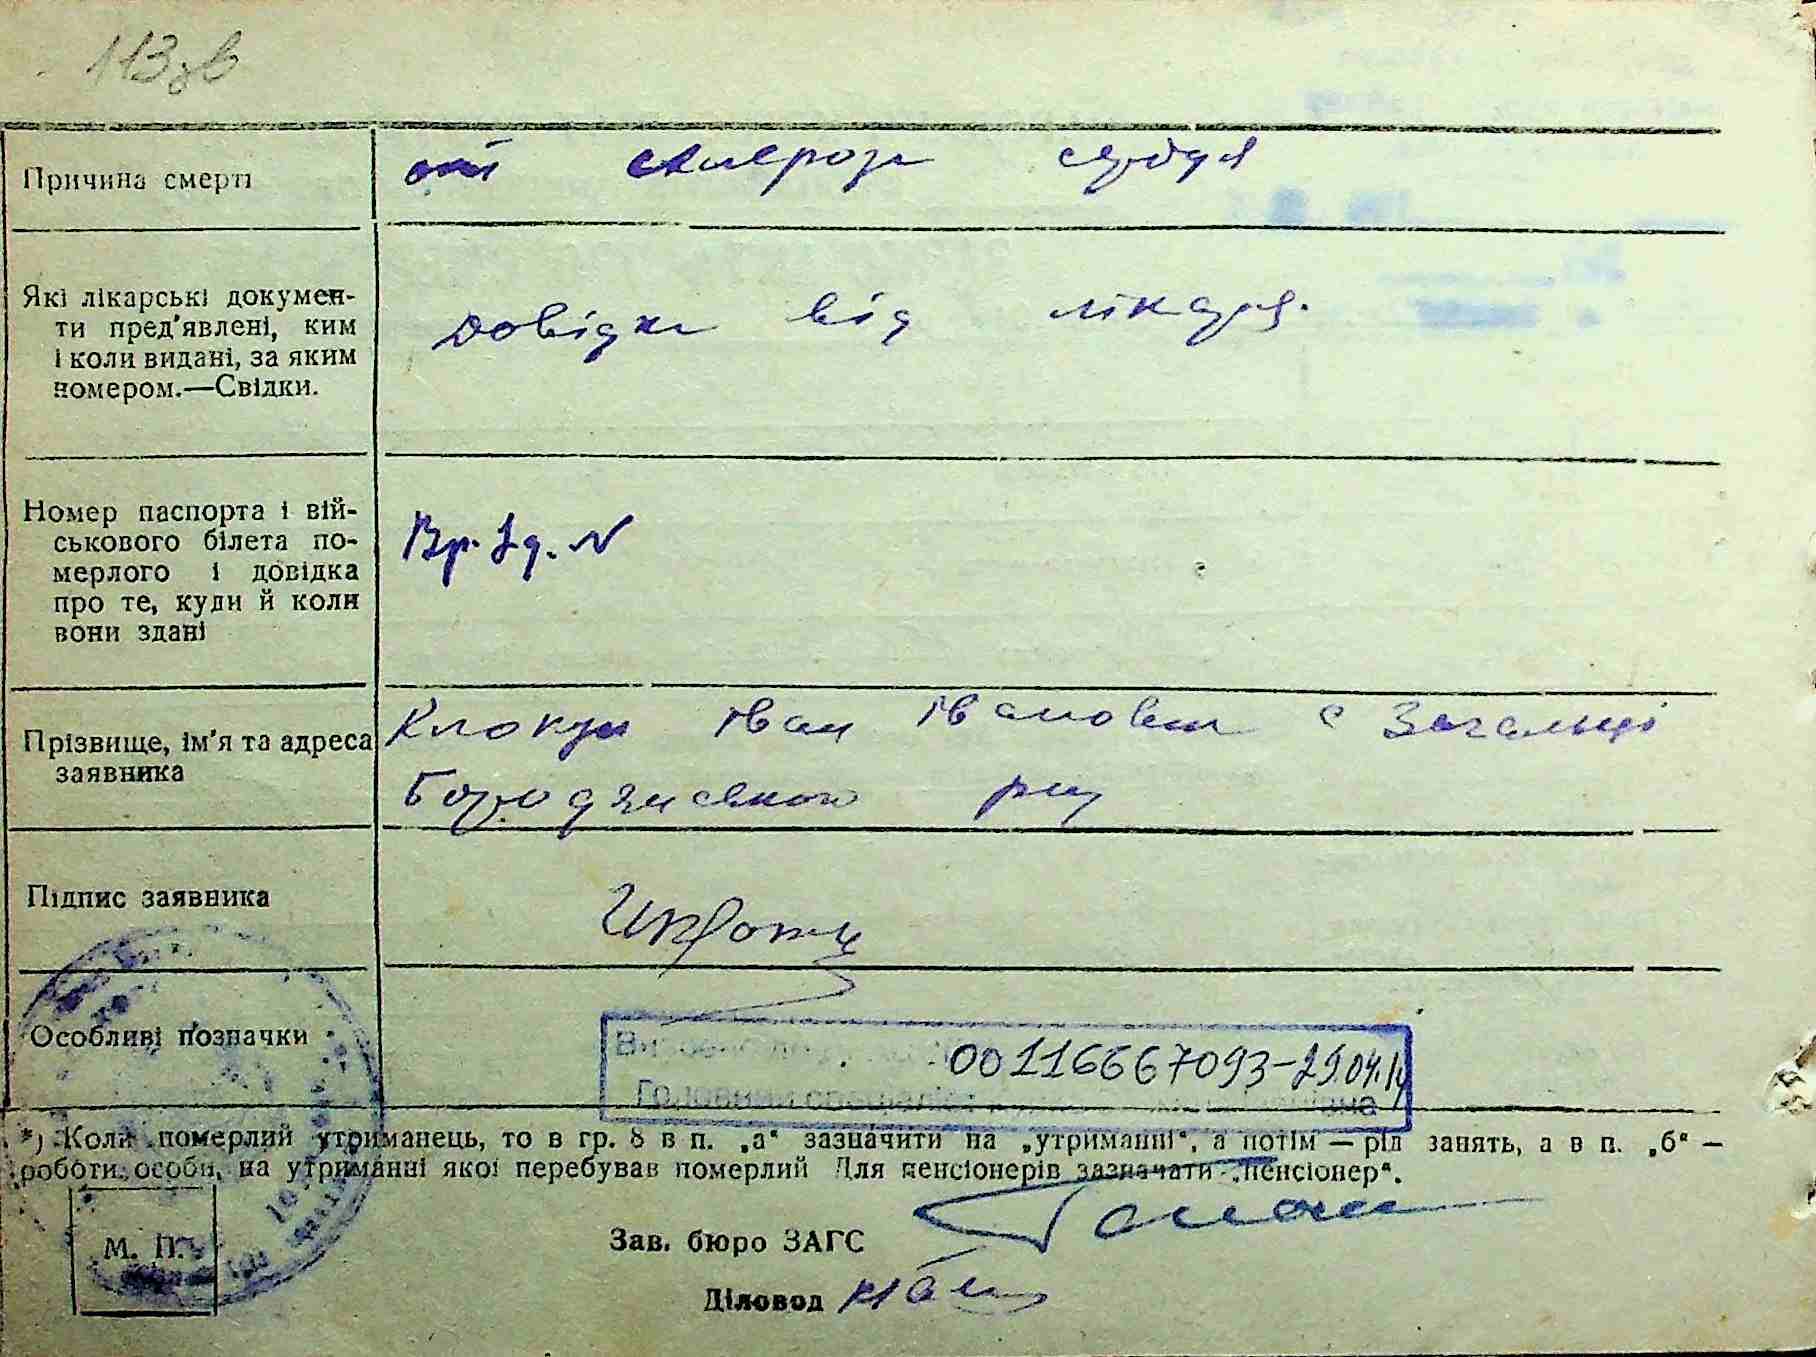 113зв
Причина смерті
от склероза сердця
Які лікарські докумен-
ти пред'явлені, ким
і коли видані, за яким
номером.—Свідки.
довідка від лікаря.
Номер паспорта і вій-
ськового білета по-
мерлого і довідка
про те, куди й коли
вони здані
Вр. Уд. N
Прізвище, ім'я та адреса
заявника
Клокун Іван Іванович с Загальці
Бородянського р-ну
Підпис заявника
Особливі позначки
00116667093-29.04.14
Головний спеціаліст
*) Коли померлий утриманець, то в гр. 8 в п. „а“ зазначити на „утриманні“, а потім — рід занять, а в п. „б“ —
роботи особи, на утриманні якої перебував померлий Для пенсіонерів зазначати „пенсіонер“.
М. П.
Зав. бюро ЗАГС
Діловод